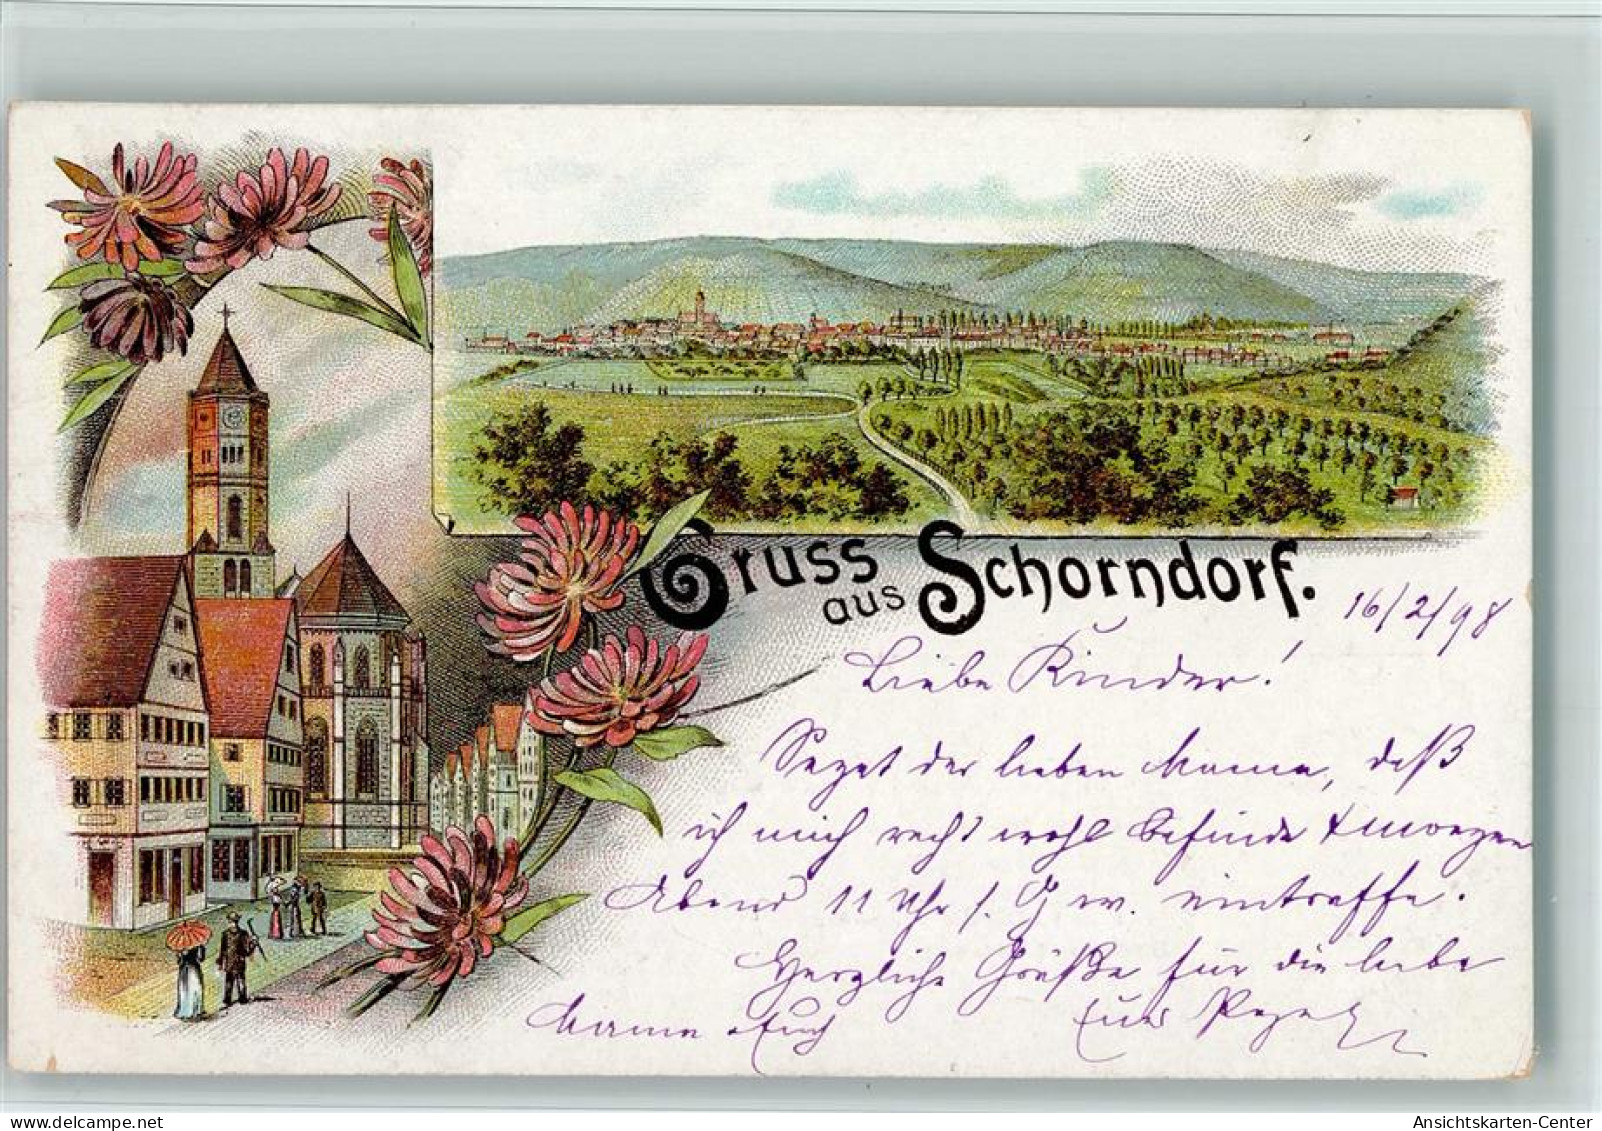 Gruss
aus Schorndorf.
16/2/98
Liebe Kinder!
Saget der lieben Mama, daß
ich mich recht wohl befinde & morgen
Abend 11 Uhr eintreffe.
Herzliche Grüße für die liebe
Mama & Euch Euer Papa
delcampe.net
Ansichtskarten-Center